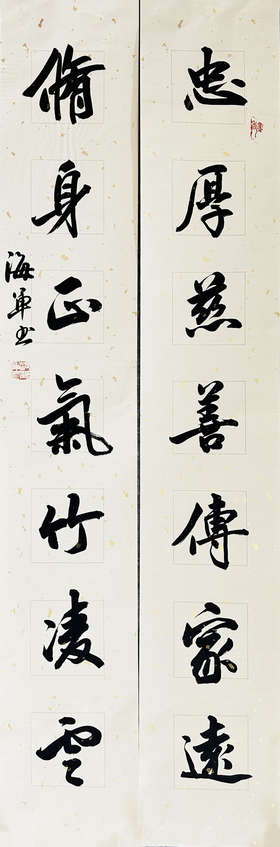 忠厚慈善傳家遠
脩身正氣竹凌雲
海軍书